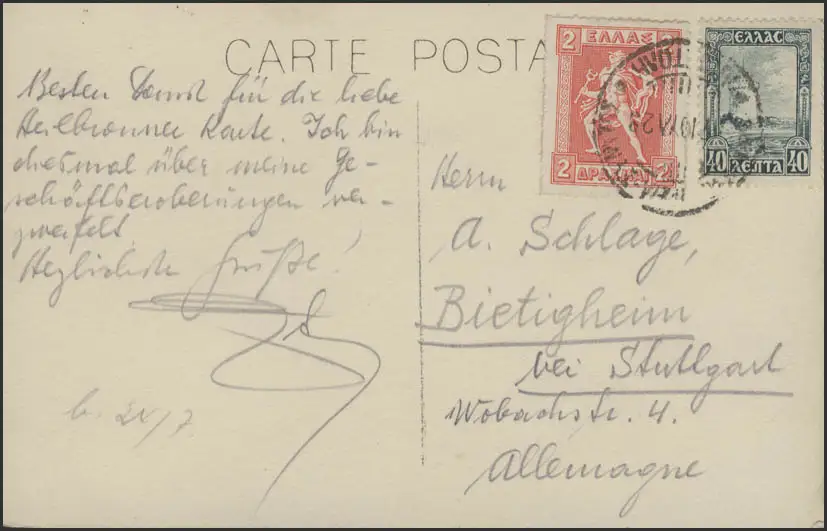 CARTE POSTA
Besten Dank für die liebe
Heilbronner Karte. Ich bin
diesmal über meine Ge-
schäftseroberungen ver-
zweifelt.
Herzlichste Grüße!
2 ΕΛΛΑΣ 2
2 ΔΡΑΧΜΑΙ 2
ΕΛΛΑΣ
40 ΛΕΠΤΑ 40
Herrn
A. Schlage,
Bietigheim
bei Stuttgart
Wobachstr. 4.
Allemagne